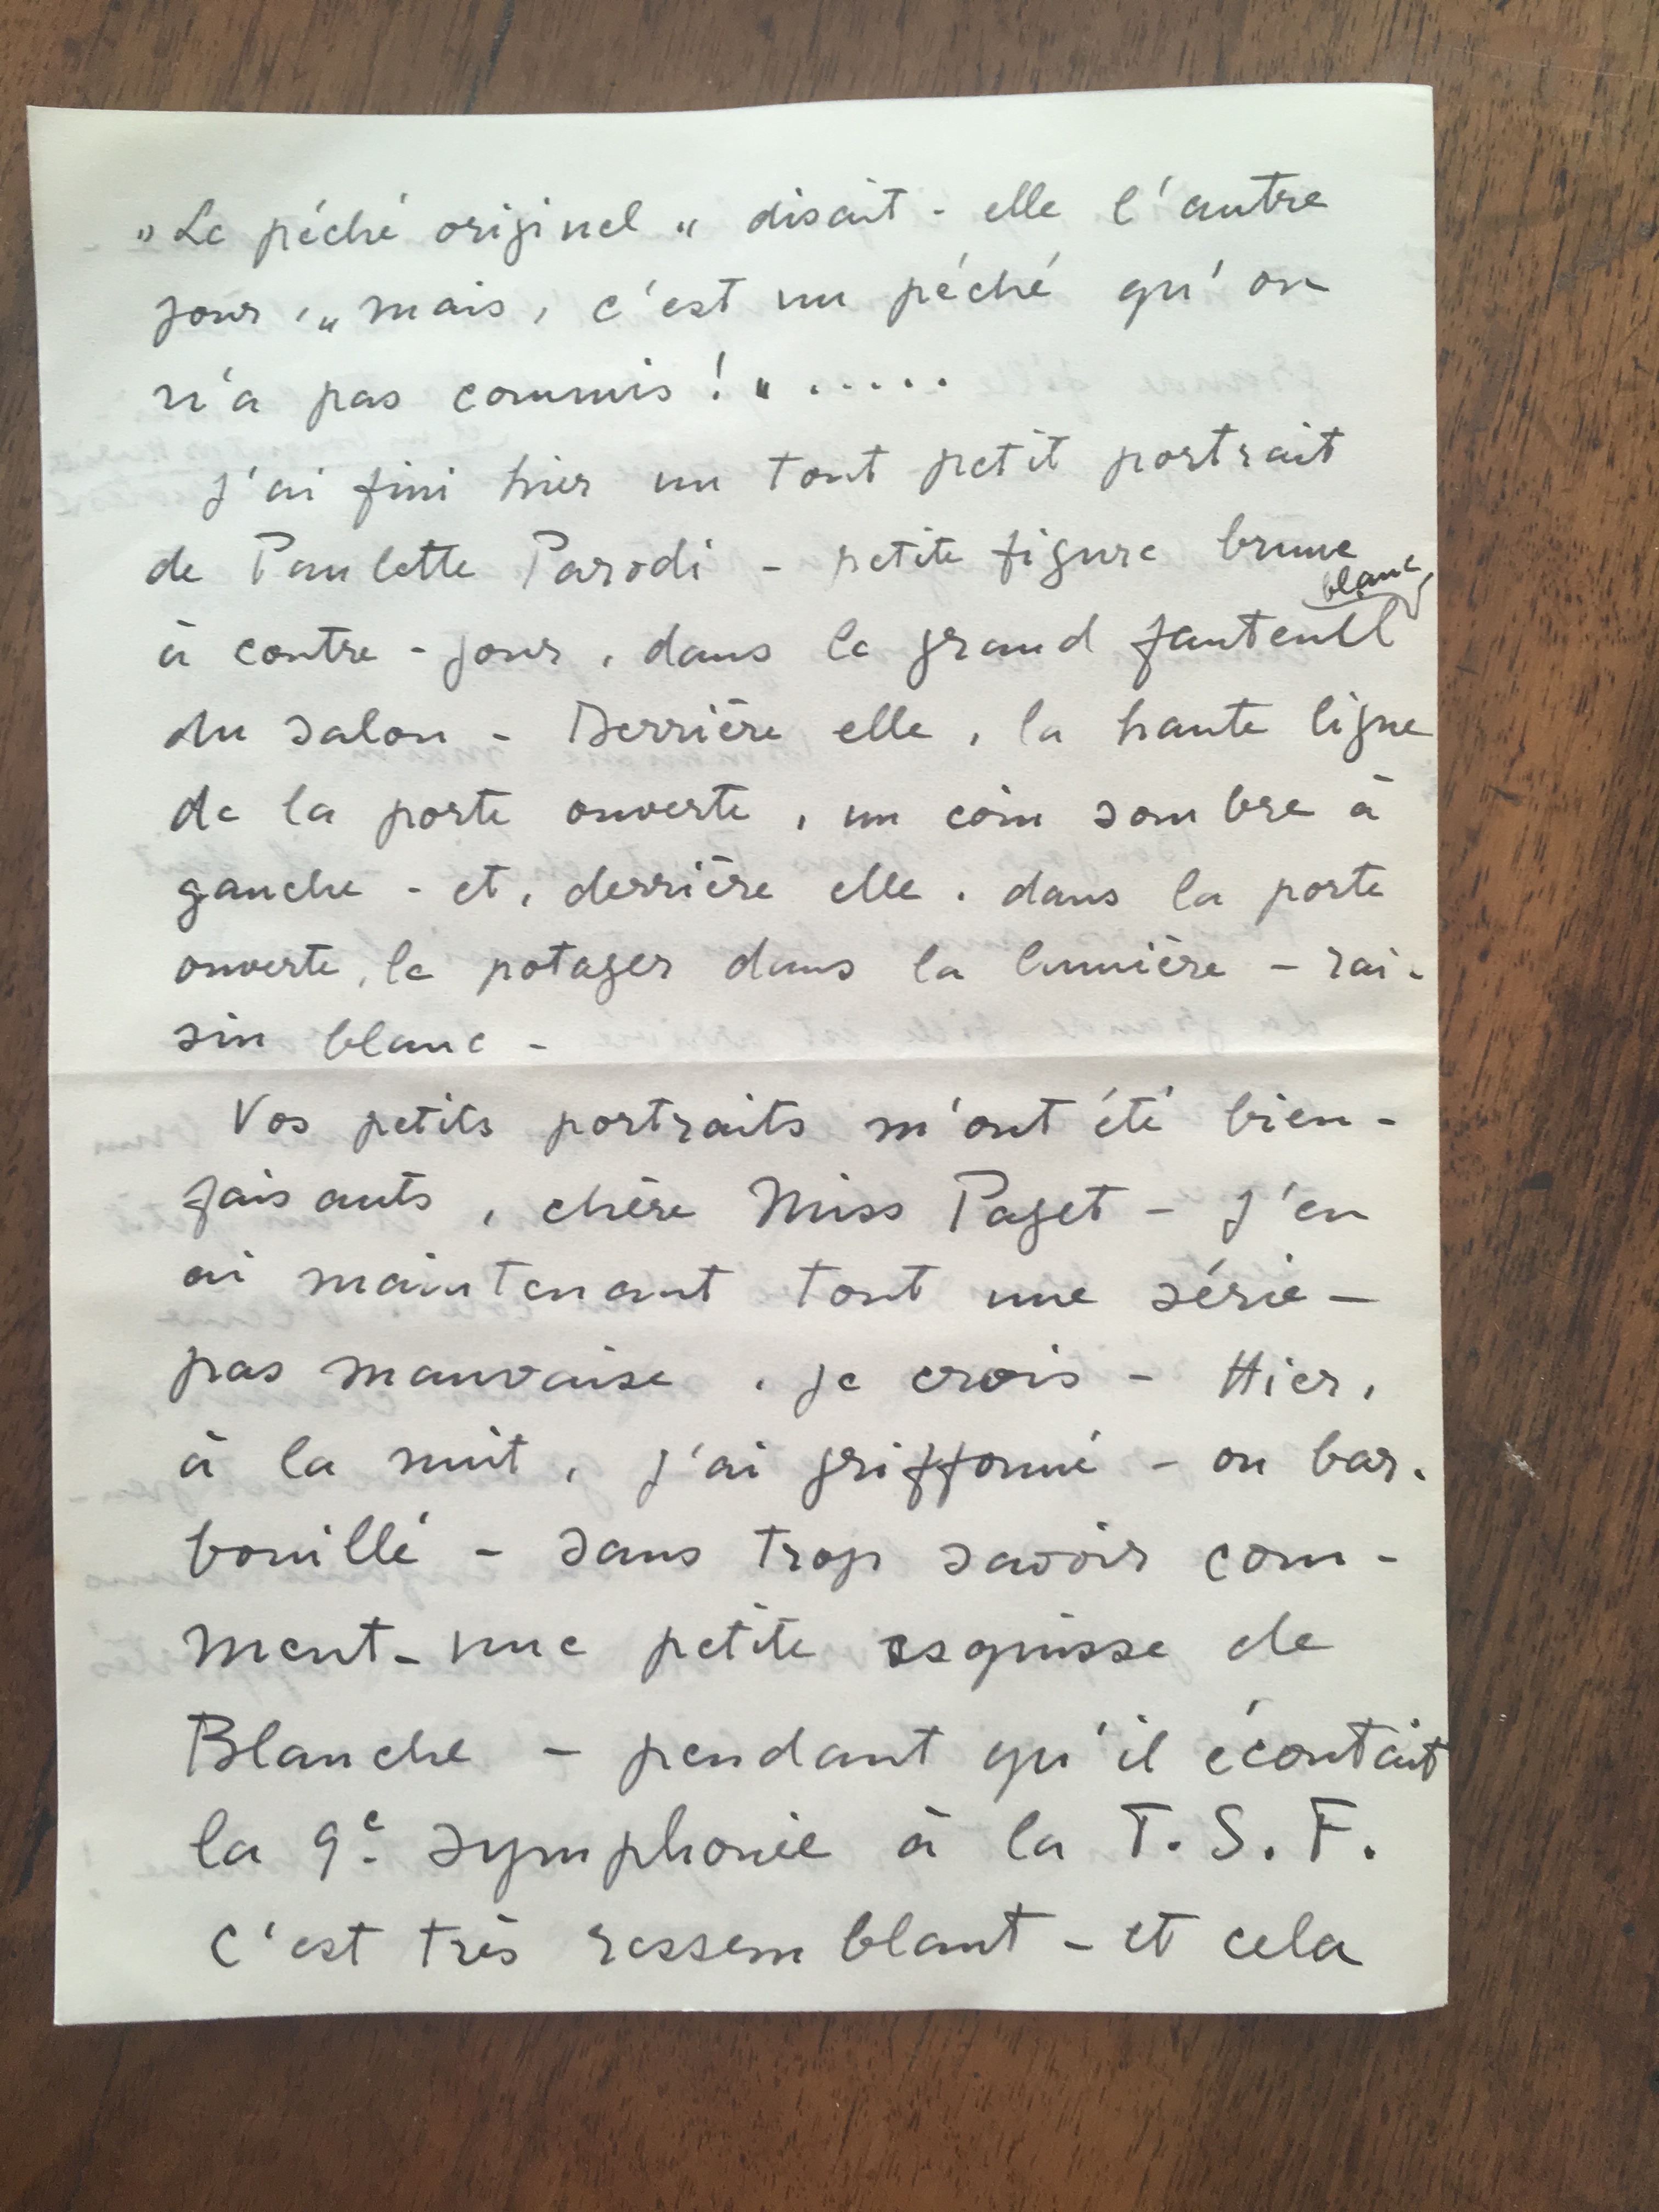 "Le péché originel" disait-elle l'autre
jour, "mais, c'est un péché qu'on
n'a pas commis!" .....
J'ai fini hier un tout petit portrait
de Paulette Parodi - petite figure brune
à contre-jour, dans le grand fauteuil blanc
du salon - Derrière elle, la haute ligne
de la porte ouverte, un coin sombre à
gauche - et, derrière elle, dans la porte
ouverte, le potager dans la lumière - rai-
sin blanc -
Vos petits portraits m'ont été bien-
faisants, chère Miss Paget - J'en
ai maintenant tout une série -
pas mauvaise, je crois - Hier,
à la nuit, j'ai griffonné - ou bar-
bouillé - sans trop savoir com-
ment - une petite esquisse de
Blanche - pendant qu'il écoutait
la 9e symphonie à la T.S.F.
C'est très ressemblant - et cela